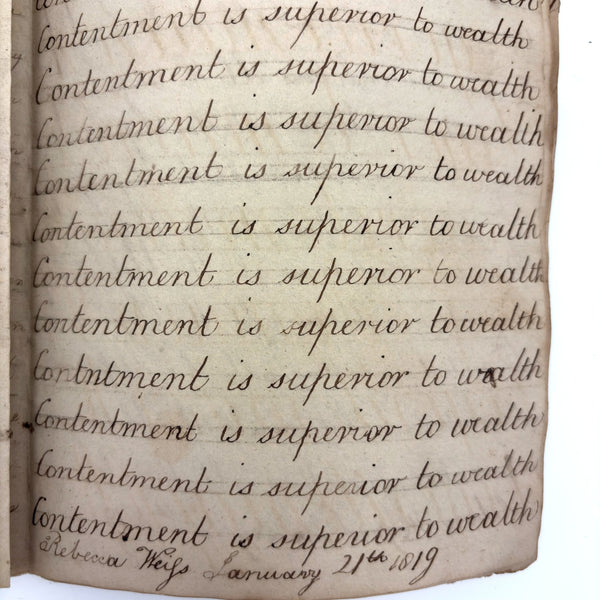 Contentment is superior to wealth
Contentment is superior to wealth
Contentment is superior to wealth
Contentment is superior to wealth
Contentment is superior to wealth
Contentment is superior to wealth
Contentment is superior to wealth
Contntment is superior to wealth
Contentment is superior to wealth
Contentment is superior to wealth
Contentment is superior to wealth
Rebecca Weiſs January 21th 1819